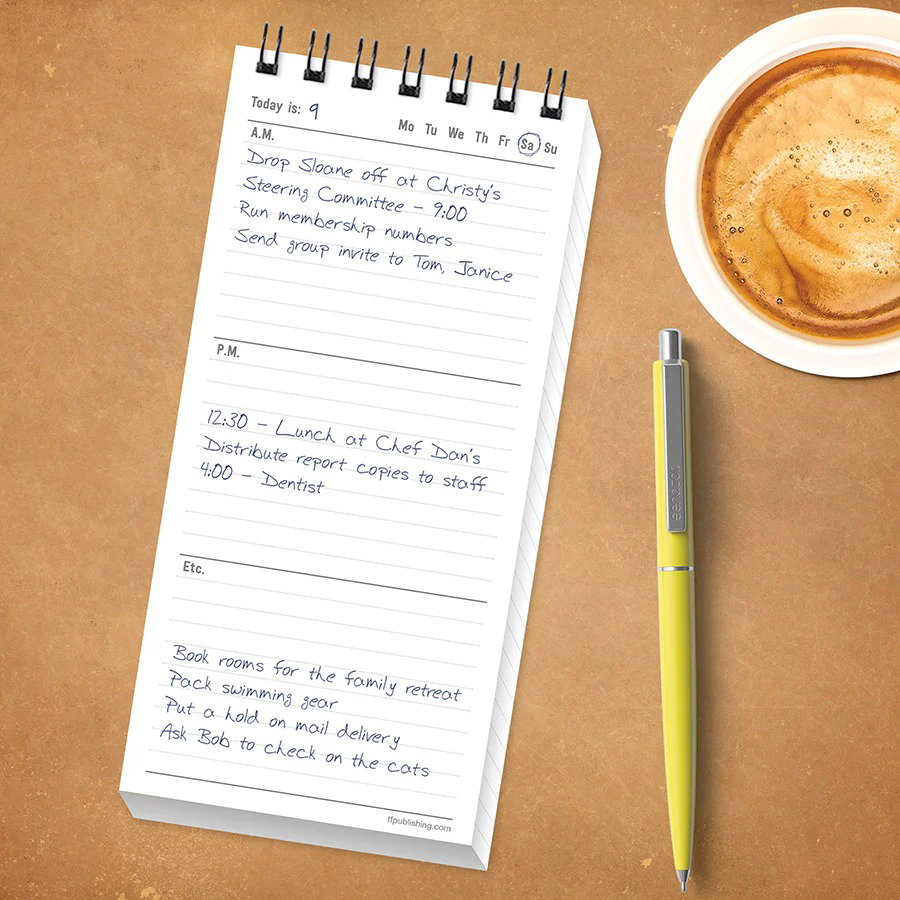 Today is: 9
Mo Tu We Th Fr Sa Su
A.M.
Drop Sloane off at Christy's
Steering Committee – 9:00
Run membership numbers
Send group invite to Tom, Janice
P.M.
12:30 – Lunch at Chef Dan's
Distribute report copies to staff
4:00 – Dentist
Etc.
Book rooms for the family retreat
Pack swimming gear
Put a hold on mail delivery
Ask Bob to check on the cats
tfpublishing.com
senator